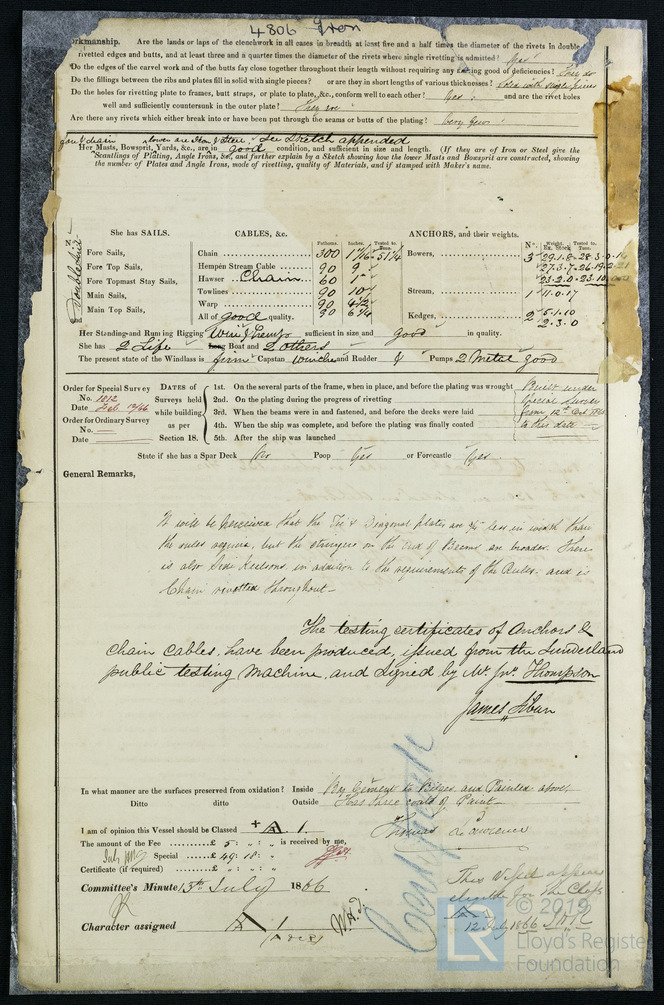 4806 Iron
orkmanship. Are the lands or laps of the clenchwork in all cases in breadth at least five and a half times the diameter of the rivets in double
rivetted edges and butts, and at least three and a quarter times the diameter of the rivets where single rivetting is admitted? Yes
Do the edges of the carvel work and of the butts fay close together throughout their length without requiring any making good of deficiencies? They do
Do the fillings between the ribs and plates fill in solid with single pieces? or are they in short lengths of various thicknesses? Solid with single pieces
Do the holes for rivetting plate to frames, butt straps, or plate to plate, &c., conform well to each other? Yes and are the rivet holes
well and sufficiently countersunk in the outer plate? They are
Are there any rivets which either break into or have been put through the seams or butts of the plating? Very few
lower are Iron & Steel. See Sketch appended
Her Masts, Bowsprit, Yards, &c., are in good condition, and sufficient in size and length. (If they are of Iron or Steel give the
Scantlings of Plating, Angle Irons, &c., and further explain by a Sketch showing how the lower Masts and Bowsprit are constructed, showing
the number of Plates and Angle Irons, mode of rivetting, quality of Materials, and if stamped with Maker's name.
She has SAILS. CABLES, &c. Fathoms. Inches. Tested to Tons. ANCHORS, and their weights. No. Weight. Ex. Stock Tested to Tons.
Fore Sails, Chain 300 1 11/16 51 1/4 Bowers, 3 29.1.8
Fore Top Sails, Hempen Stream Cable 90 9 27.3.7
Fore Topmast Stay Sails, Hawser Chain 60 1 23.2.0
Main Sails, Towlines 90 10 Stream, 1 11.0.17
Main Top Sails, Warp 90 4 1/2 Kedges, 2 5.1.10
and All of good quality. 30 6 1/4 2.3.0
Her Standing and Running Rigging Wire & Hemp sufficient in size and good in quality.
She has 2 Life Long Boat and 2 others
The present state of the Windlass is firm Capstan Winches and Rudder Pumps 2 Metal good
Order for Special Survey
No. 1012
Date Feb 12/66
Order for Ordinary Survey
No. —
Date
DATES of Surveys held while building as per Section 18.
1st. On the several parts of the frame, when in place, and before the plating was wrought
2nd. On the plating during the progress of rivetting
3rd. When the beams were in and fastened, and before the decks were laid
4th. When the ship was complete, and before the plating was finally coated
5th. After the ship was launched
Built under
Special Survey
from 12th Oct 1865
to this date
State if she has a Spar Deck No Poop Yes or Forecastle Yes
General Remarks,
It will be perceived that the Tie & Diagonal plates are less in width than
the rules require, but the stringers on the end of Beams are broader. There
is also Side Keelsons in addition to the requirements of the Rules. and is
Chain rivetted throughout—
The testing certificates of Anchors &
chain cables, have been produced, issued from the Sunderland
public testing Machine, and signed by Mr. Jno. Thompson
James
In what manner are the surfaces preserved from oxidation? Inside By Cement to Bilges and Painted above
Ditto ditto Outside Has three coats of Paint
I am of opinion this Vessel should be Classed + A. 1.
Thomas Lawrence
The amount of the Fee £ 5 : „ : „ is received by me,
Special £ 49 : 18 : „
Certificate (if required) £ „ : „ : „
Committee's Minute 13th July 1866
Character assigned A 1
Certificate
This Vessel appears
eligible for the Class
12 July 1866
LR
© 2019
Lloyd's Register
Foundation